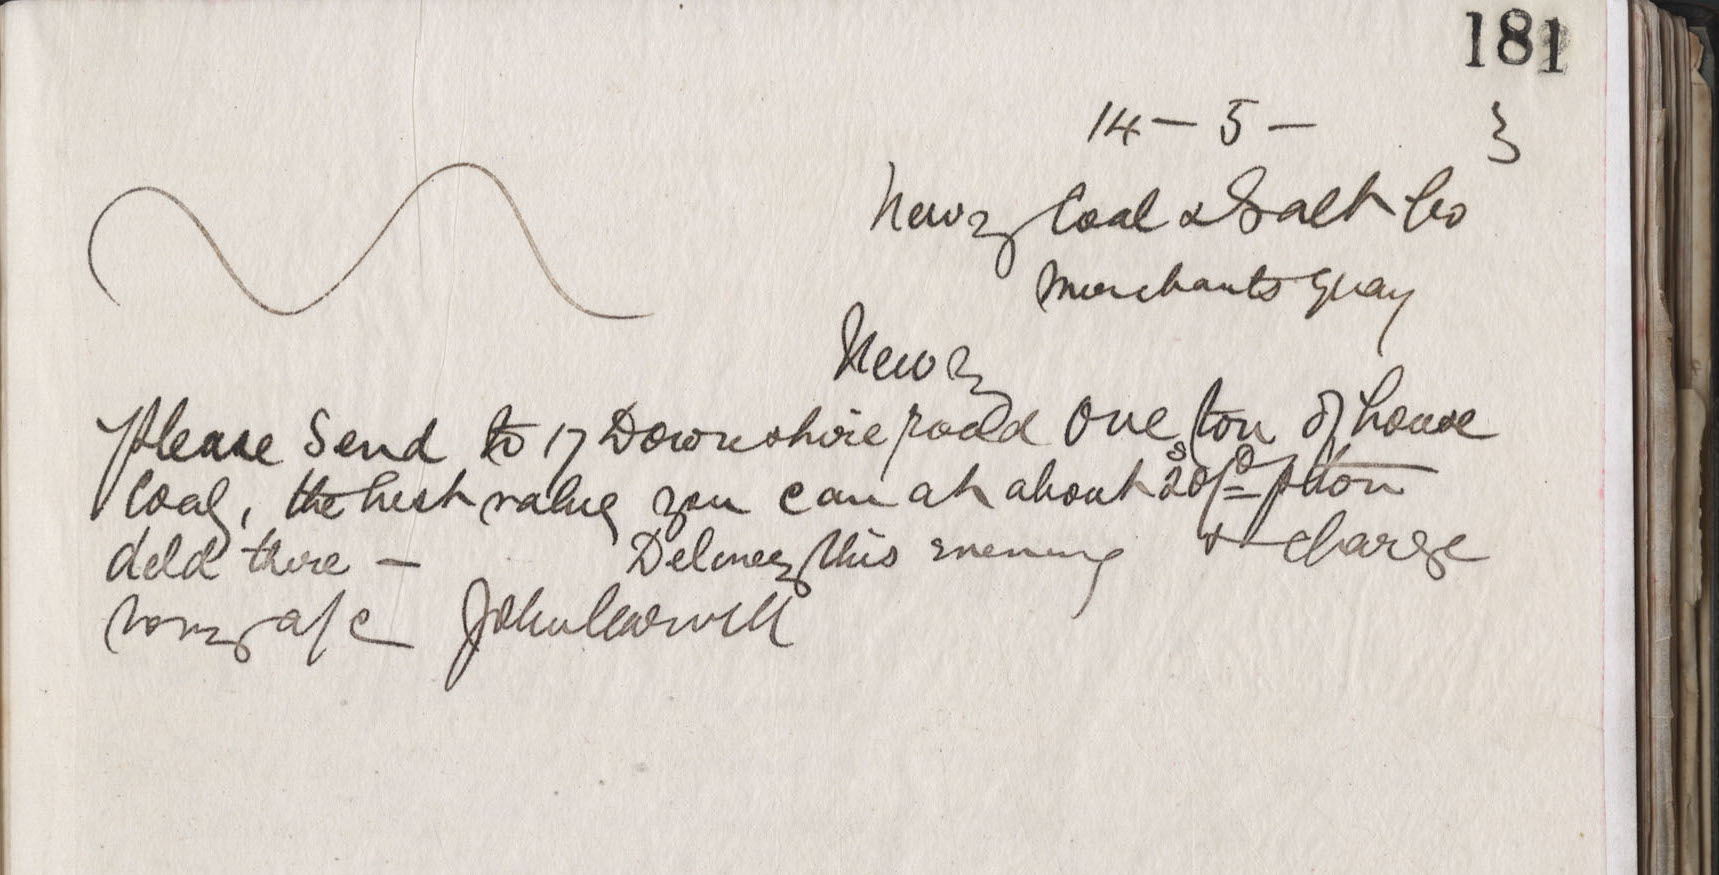 181
14 - 5 - 3
Newry Coal & Salt Co
Merchants Quay
Newry
Please Send to 17 Downshire road One ton of house
Coal, the best value you can at about 20s/=d p ton
deld there - Delivery this evening & charge
to my a/c John